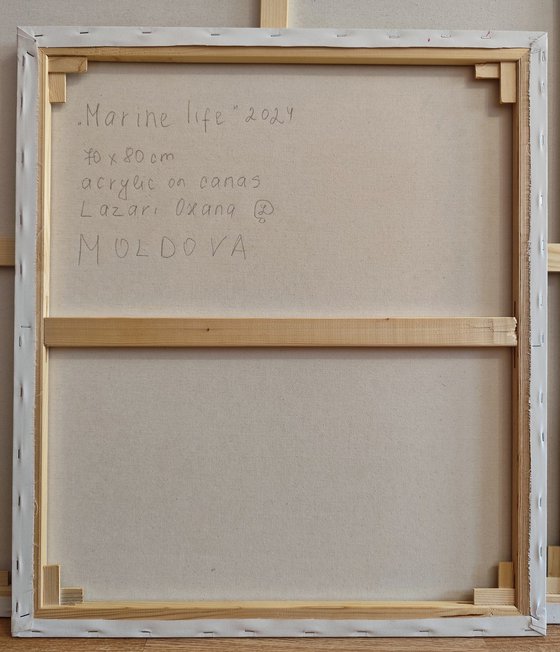 „Marine life" 2024
70 x 80 cm
acrylic on canas
Lazari Oxana
MOLDOVA